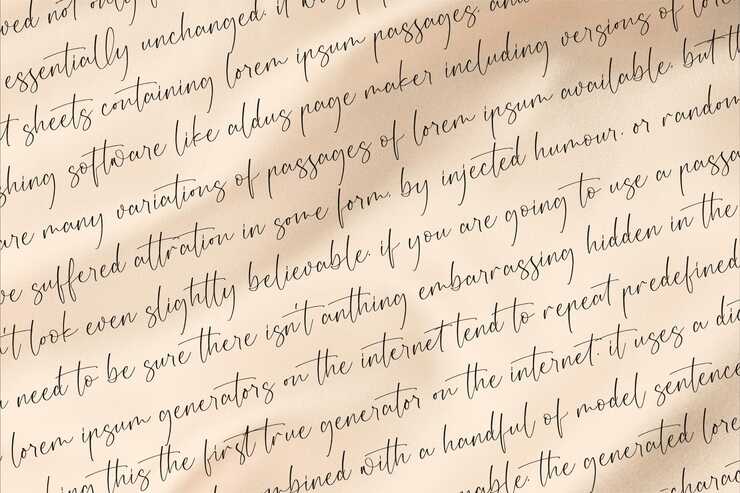 ved not only f
essentially unchanged. it was p
t sheets containing lorem ipsum passages. and
shing software like aldus page maker including versions of lore
are many variations of passages of lorem ipsum available. but th
ve suffered attration in some form. by injected humour. or random
n't look even slightly believable. if you are going to use a passa
need to be sure there isn't anthing embarrassing hidden in the
lorem ipsum generators on the internet tend to repeat predefined
king this the first true generator on the internet. it uses a dic
mbined with a handful of model sentence
nable. the generated lore
charac